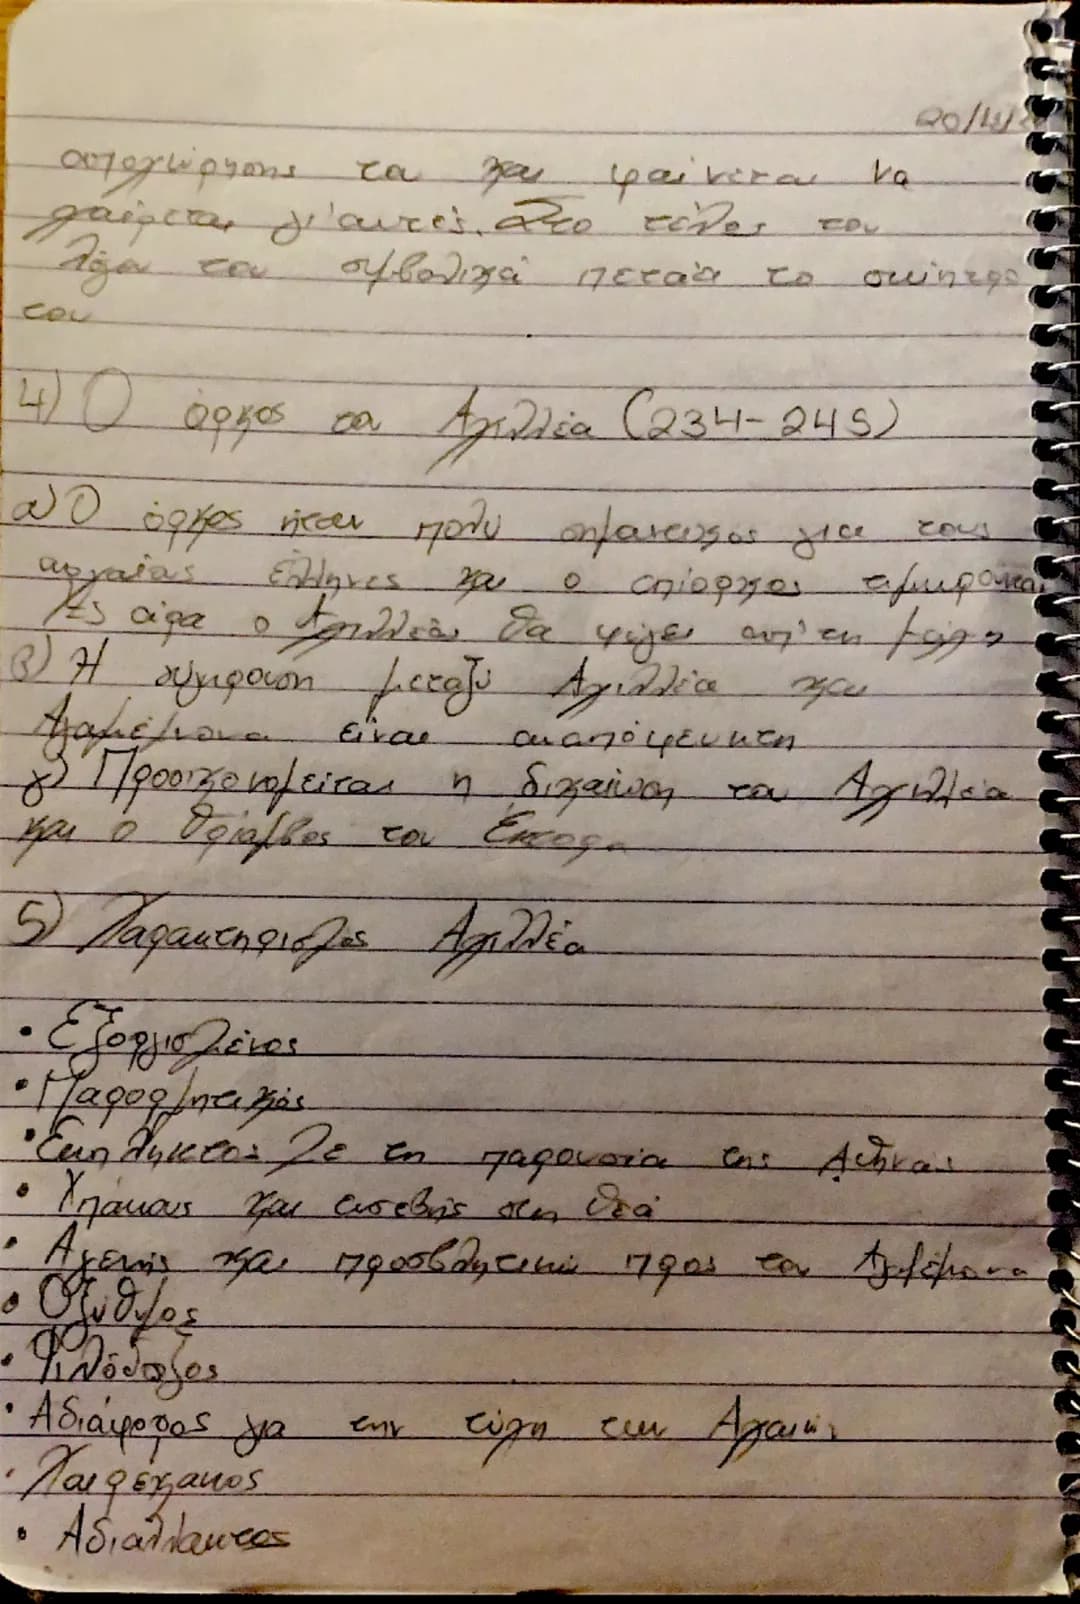 αποχώρησης του και φαίνεται να
χαίρεται γι'αυτές. Στο τέλος του
λόγου του συμβολικά πετάει το σκήπτρο
του
4) Ο όρκος του Αχιλλέα (234-245)
α) Ο όρκος ήταν πολύ σημαντικός για τους
αρχαίους έλληνες και ο επίορκος τιμωρούνταν
άρα ο Αχιλλέας θα φύγει απ'τη μάχη
β) Η σύγκρουση μεταξύ Αχιλλέα και
Αγαμέμνονα είναι αναπόφευκτη
γ) Προοικονομείται η δικαίωση του Αχιλλέα
και ο θρίαμβος του Έκτορα
5) Χαρακτηρισμός Αχιλλέα
• Εξοργισμένος
• Παρορμητικός
• Έκπληκτος με τη παρουσία της Αθηνάς
• Υπάκουος και ευσεβής στη θεά
• Αγενής και προσβλητικός προς τον Αγαμέμνονα
• Οξύθυμος
• Φιλόδοξος
• Αδιάφορος για την τύχη των Αχαιών
• Χαιρέκακος
• Αδιάλλακτος